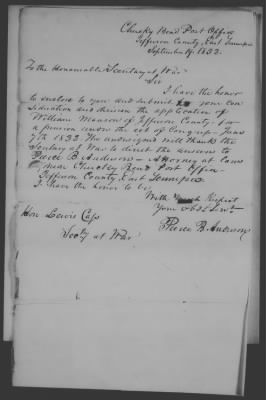 Chucky Bend Post Office
Jefferson County, East Tennessee
September 19. 1832.
To the Honorable Secretary at War
Sir
I have the honor
to enclose to you and submit to your con
sideration and decision the application of
William Manson of Jefferson County for
a pension under the act of Congress June
7th 1832. The undersigned will thank the
Secretary at War to direct the answer to
Pierce B. Anderson — Attorney at Law
near Chuckey Bend Post Office
Jefferson County East Tennessee
I have the honor to be
With Respect
Your obt Servt
Pierce B. Anderson
Hon Lewis Cass
Secty at War